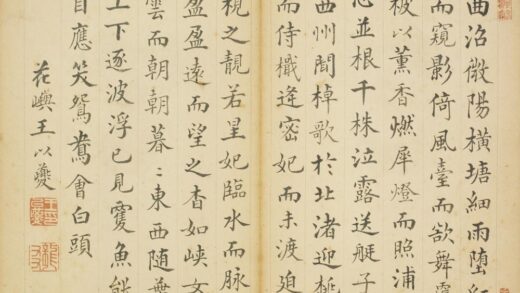 曲沼微陽橫塘細雨堕
而窺影倚風臺而欲舞
被以薰香燃犀燈而照浦
並根千株泣露送艇子
西州聞棹歌於北渚迎桃
而侍檝逢密妃而未渡迫
視之靚若星妃臨水而脉
盈盈遠而望之杳如峡女
雲而朝朝暮〻東西随
上下逐波浮已見雙魚能
自應笑鴛鴦會白頭
花嶼王以夔